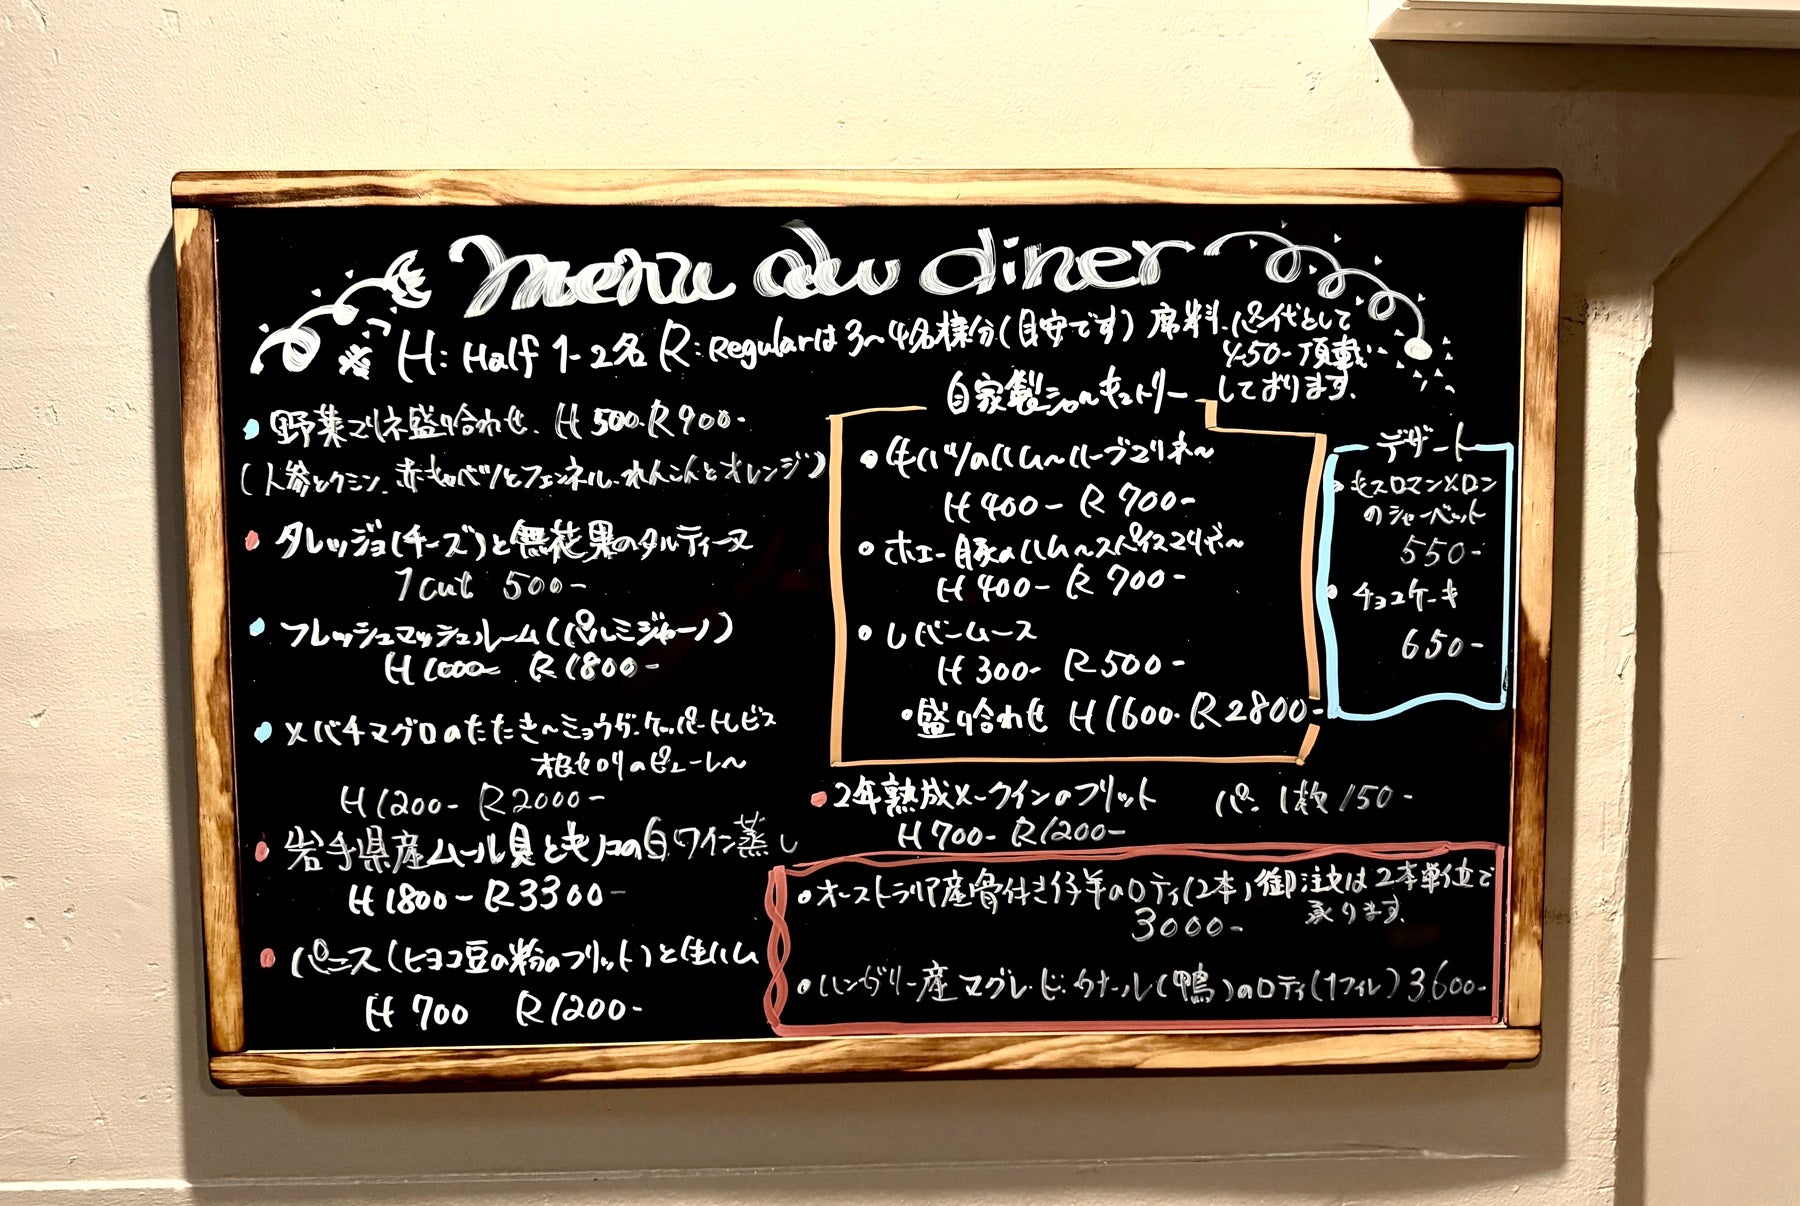 menu du diner
H: Half 1-2名 R: Regularは3〜4名様分(目安です) 席料.パン代として
450-頂戴
しております.
野菜マリネ盛り合わせ. H 500. R 900-
(人参とクミン. 赤キャベツとフェンネル. れんこんとオレンジ)
タレッジョ(チーズ)と無花果のタルティーヌ
1cut 500-
フレッシュマッシュルーム(パルミジャーノ)
H 1000- R 1800-
メバチマグロのたたき〜ミョウガ.ケッパー.トレビス
根セロリのピューレ〜
H 1200- R 2000-
岩手県産ムール貝とキノコの白ワイン蒸し
H 1800- R 3300-
パニース(ヒヨコ豆の粉のフリット)と生ハム
H 700 R 1200-
自家製シャルキュトリー
牛ハツのハム〜ハーブマリネ〜
H 400- R 700-
ホエー豚のハム〜スパイスマリネ〜
H 400- R 700-
レバームース
H 300- R 500-
盛り合わせ H 1600. R 2800-
デザート
キスロマンメロン
のシャーベット
550-
チョコケーキ
650-
2年熟成メークインのフリット
H 700- R 1200-
パン 1枚 150-
オーストラリア産骨付き仔羊のロティ(2本) 御注文は2本単位で
承ります.
3000-
ハンガリー産マグレ・ド・カナール(鴨)のロティ(1フィレ) 3600-